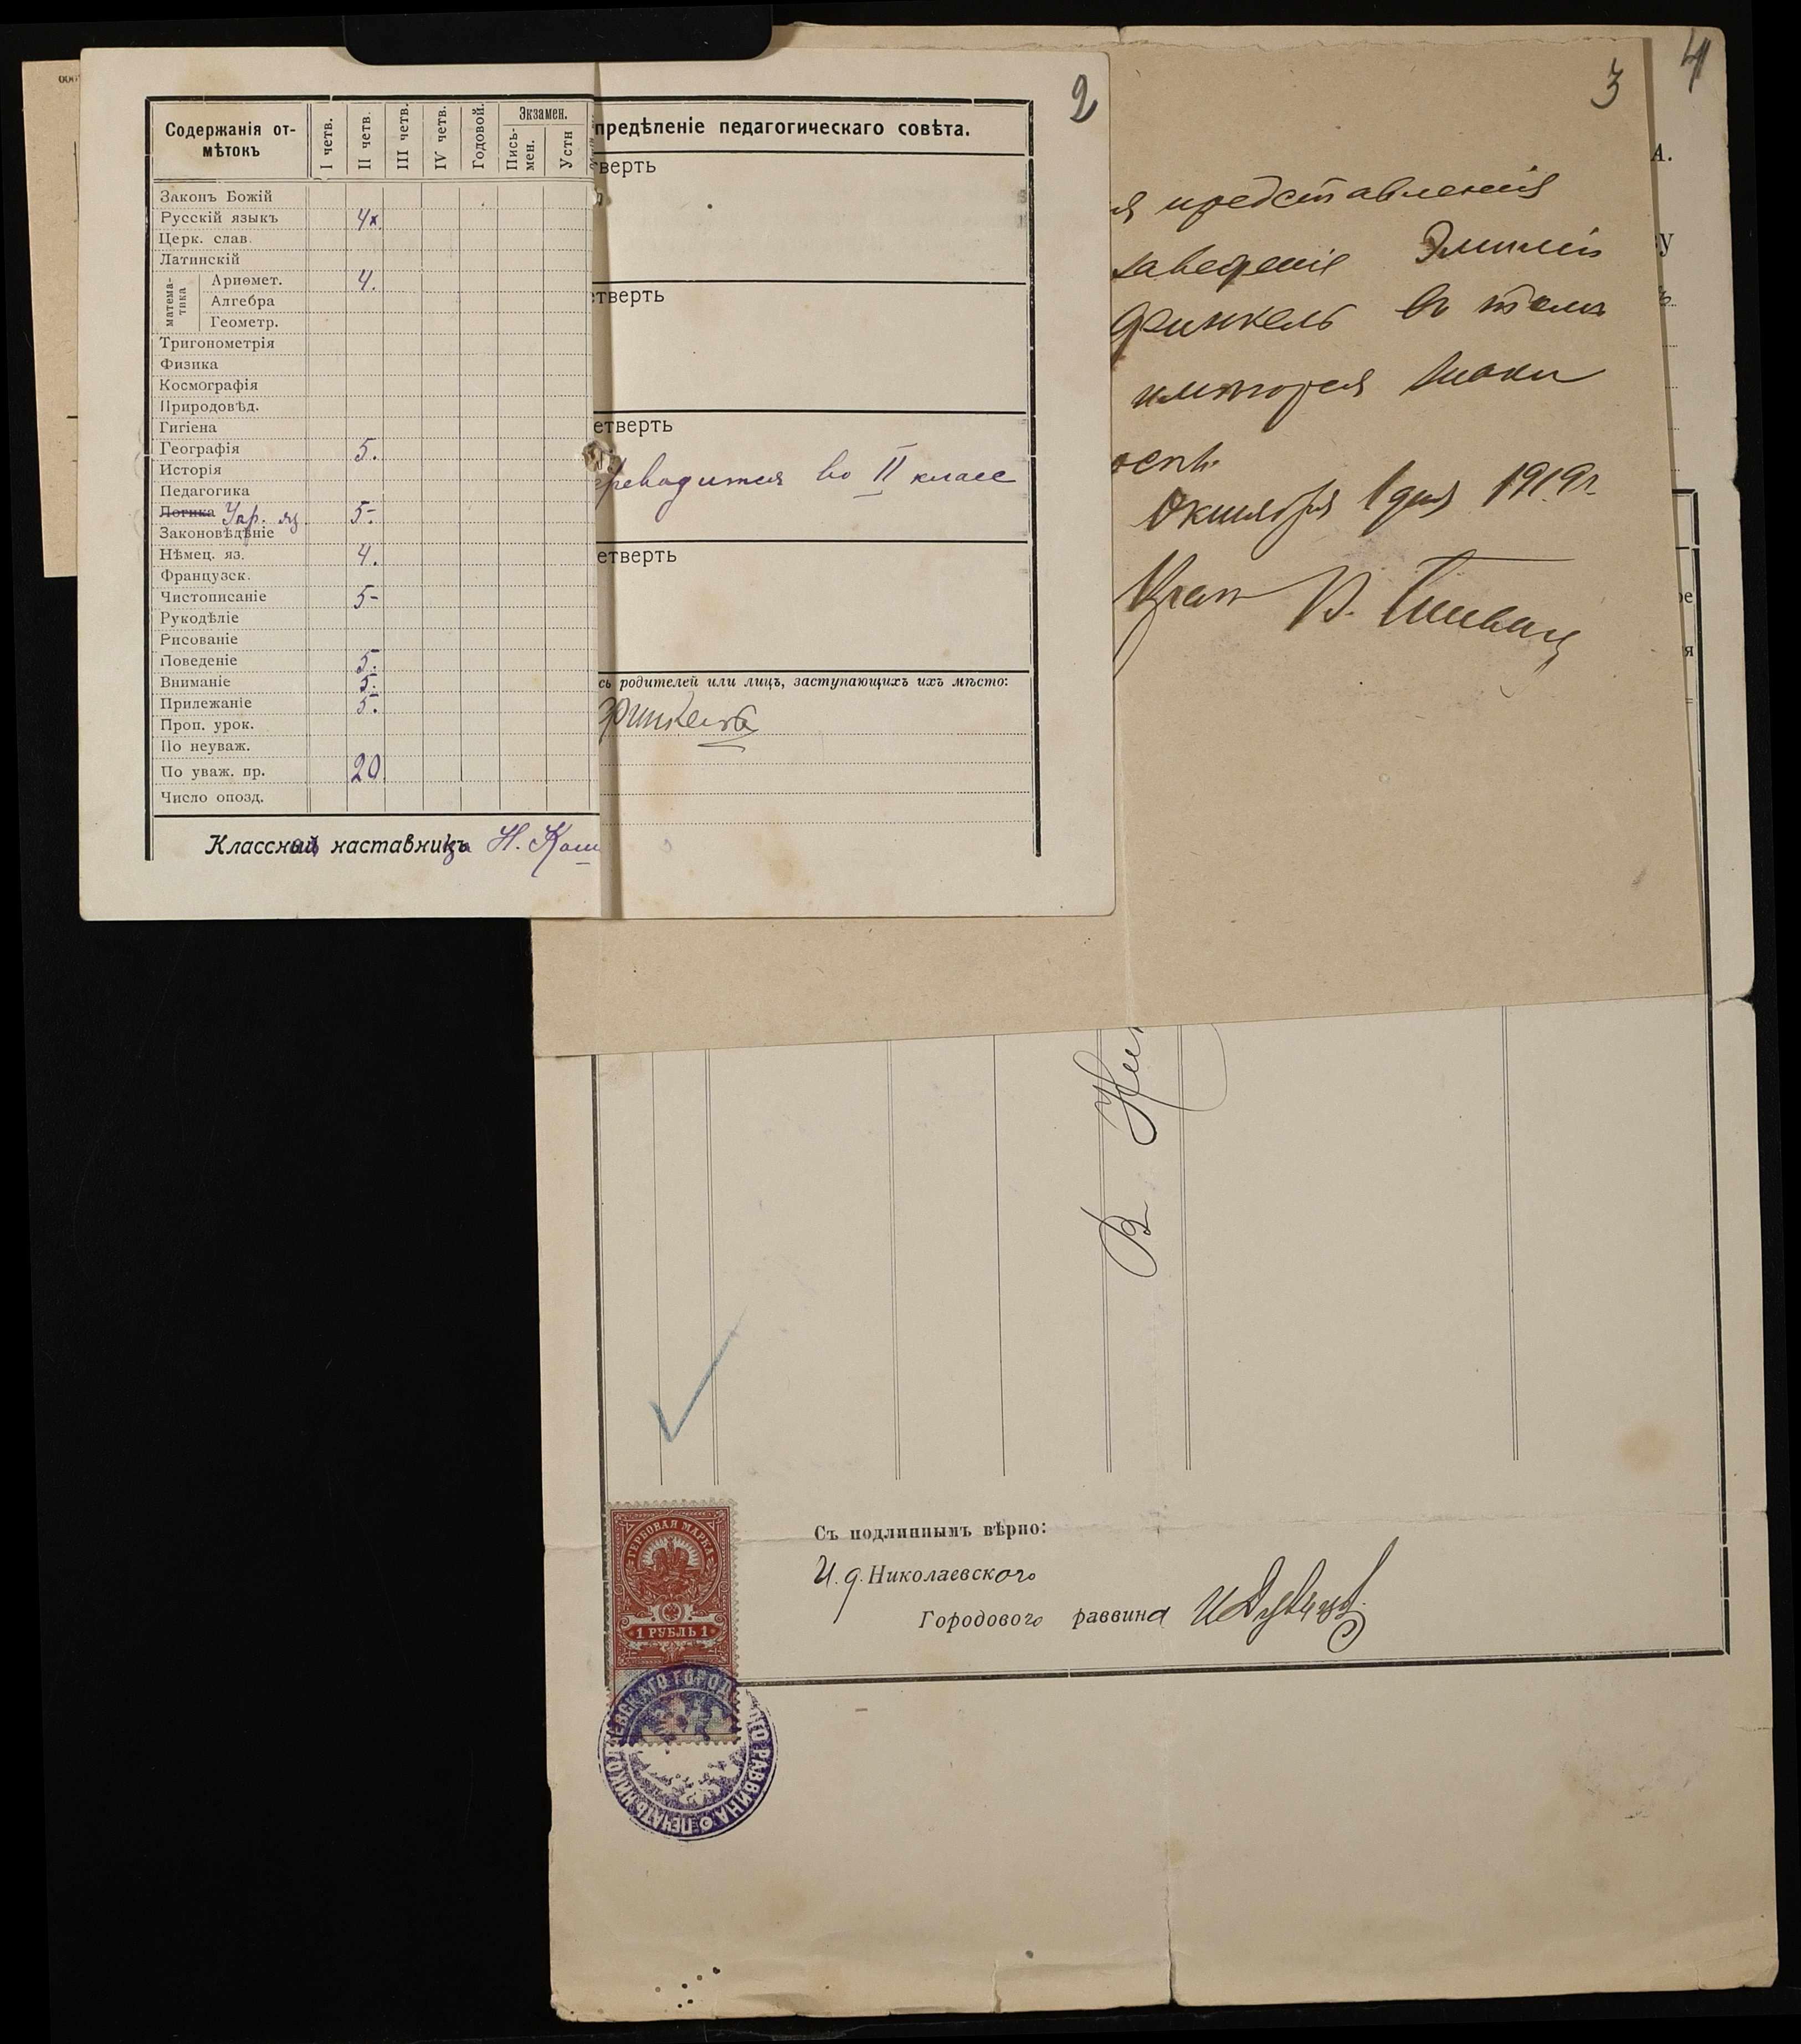 2
3
4
Содержанія от-
мѣтокъ
I четв.
II четв.
III четв.
IV четв.
Годовой.
Экзамен.
Пись-
мен.
Устн
Законъ Божій
Русскій языкъ 4
Церк. слав.
Латинскій
матема-
тика
Ариѳмет. 4.
Алгебра
Геометр.
Тригонометрія
Физика
Космографія
Природовѣд.
Гигіена
Географія 5.
Исторія
Педагогика
Логика Укр. яз. 5-
Законовѣдѣніе
Нѣмец. яз. 4.
Французск.
Чистописаніе 5-
Рукодѣліе
Рисованіе
Поведеніе 5.
Вниманіе 5.
Прилежаніе 5.
Проп. урок.
По неуваж.
По уваж. пр. 20
Число опозд.
Классный наставникъ Н.
предѣленіе педагогическаго совѣта.
верть
тверть
етверть
ереводится во II класс
етверть
сь родителей или лицъ, заступающихъ ихъ мѣсто:
Финкель
я представленія
заведеніе Эмиліи
Финкель въ том
имеются знаки
Октября 1 дня 1919г.
Врач
А.
У
я
В
Съ подлиннымъ вѣрно:
И. д. Николаевского
Городового раввина
ГЕРБОВАЯ МАРКА
1 РУБЛЬ 1
ПЕЧАТЬ НИКОЛАЕВСКАГО ГОРОДОВОГО РАВВИНА